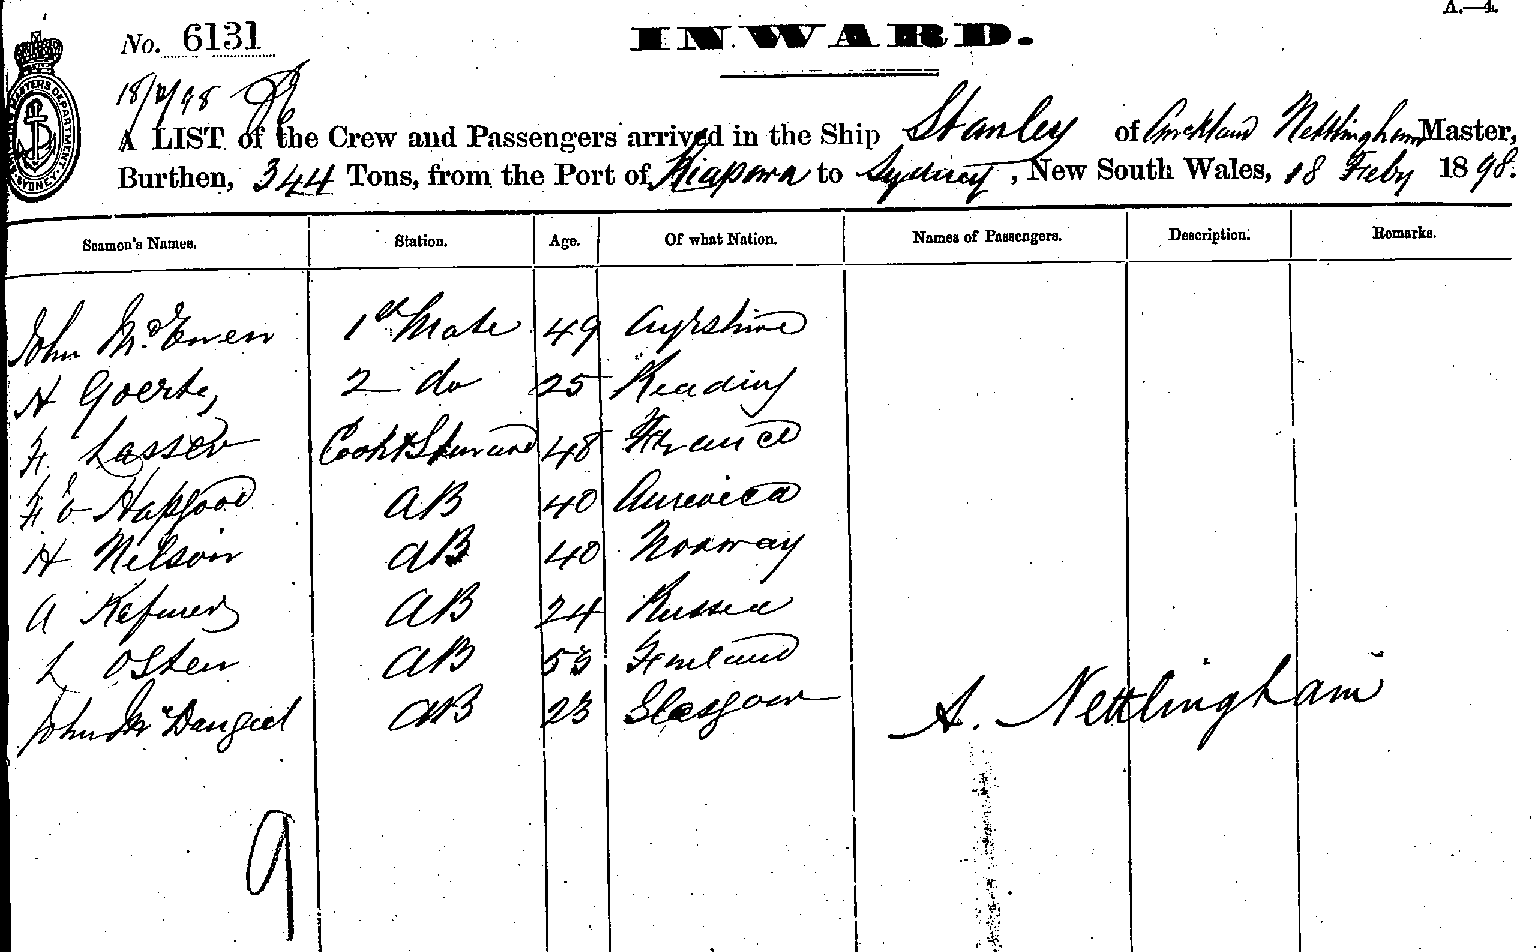 A.—4.
No. 6131
INWARD.
18/2/98
A LIST of the Crew and Passengers arrived in the Ship Stanley of Auckland Nettlingham Master,
Burthen, 344 Tons, from the Port of Kaipara to Sydney, New South Wales, 18 Feby 1898.
Seamen's Names. Station. Age. Of what Nation. Names of Passengers. Description. Remarks.
John McEwen 1st Mate 49 Ayrshire
H Goertz 2 do 25 Reading
F. Lasser Cook & Steward 48 France
F E Hapgood AB 40 America
H Nilson AB 40 Norway
A AB 24 Russia
L Osten AB 53 Finland
John AB 23 Glasgow
A. Nettlingham
9